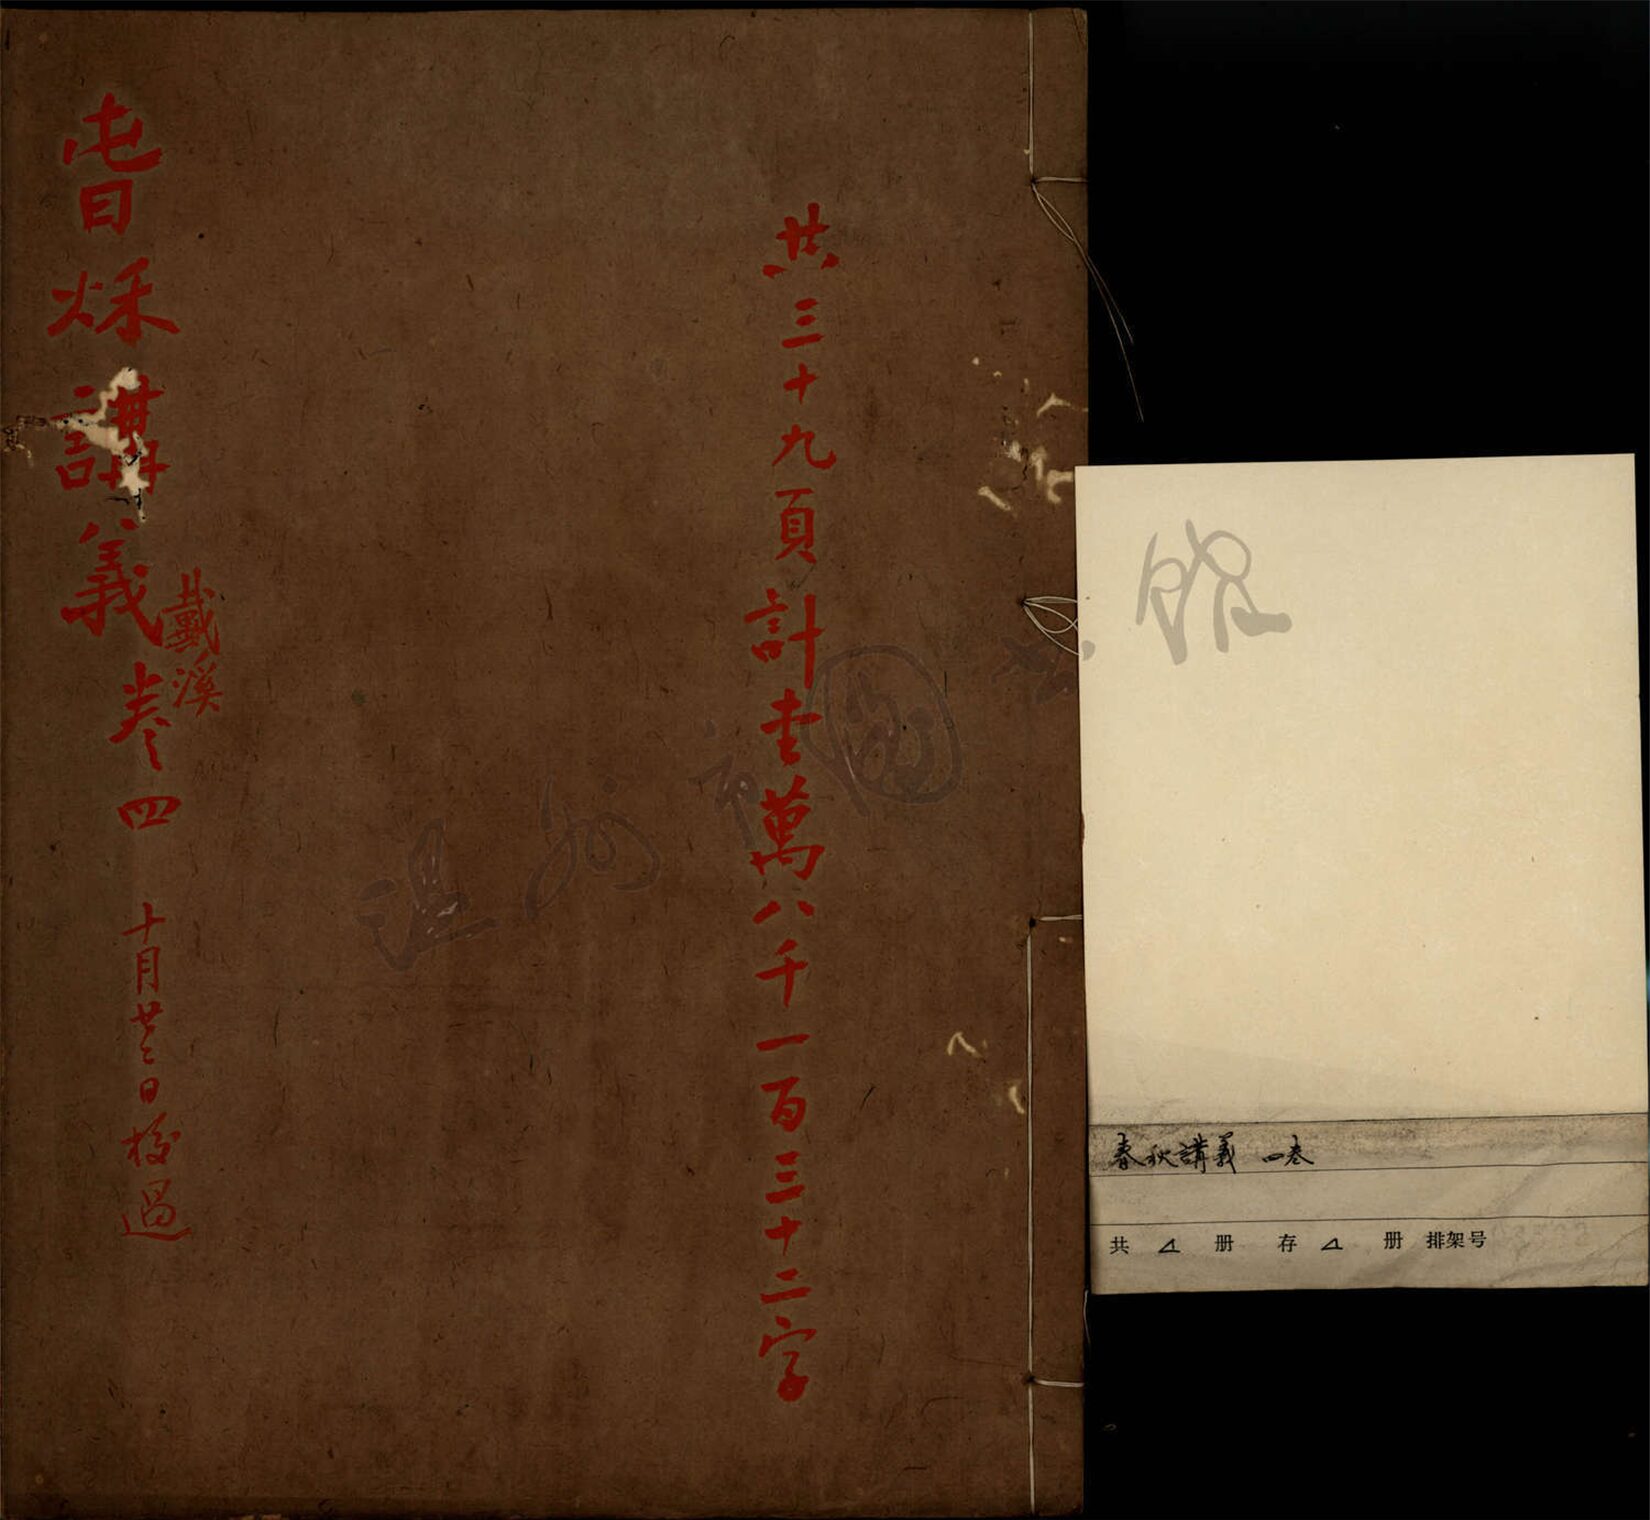 共三十九頁計壹萬八千一百三十二字
旾秌講義卷四
戴溪
十月廿二日校過
温州市圖书館
春秋講義 四卷
共 4 册 存 4 册 排架号